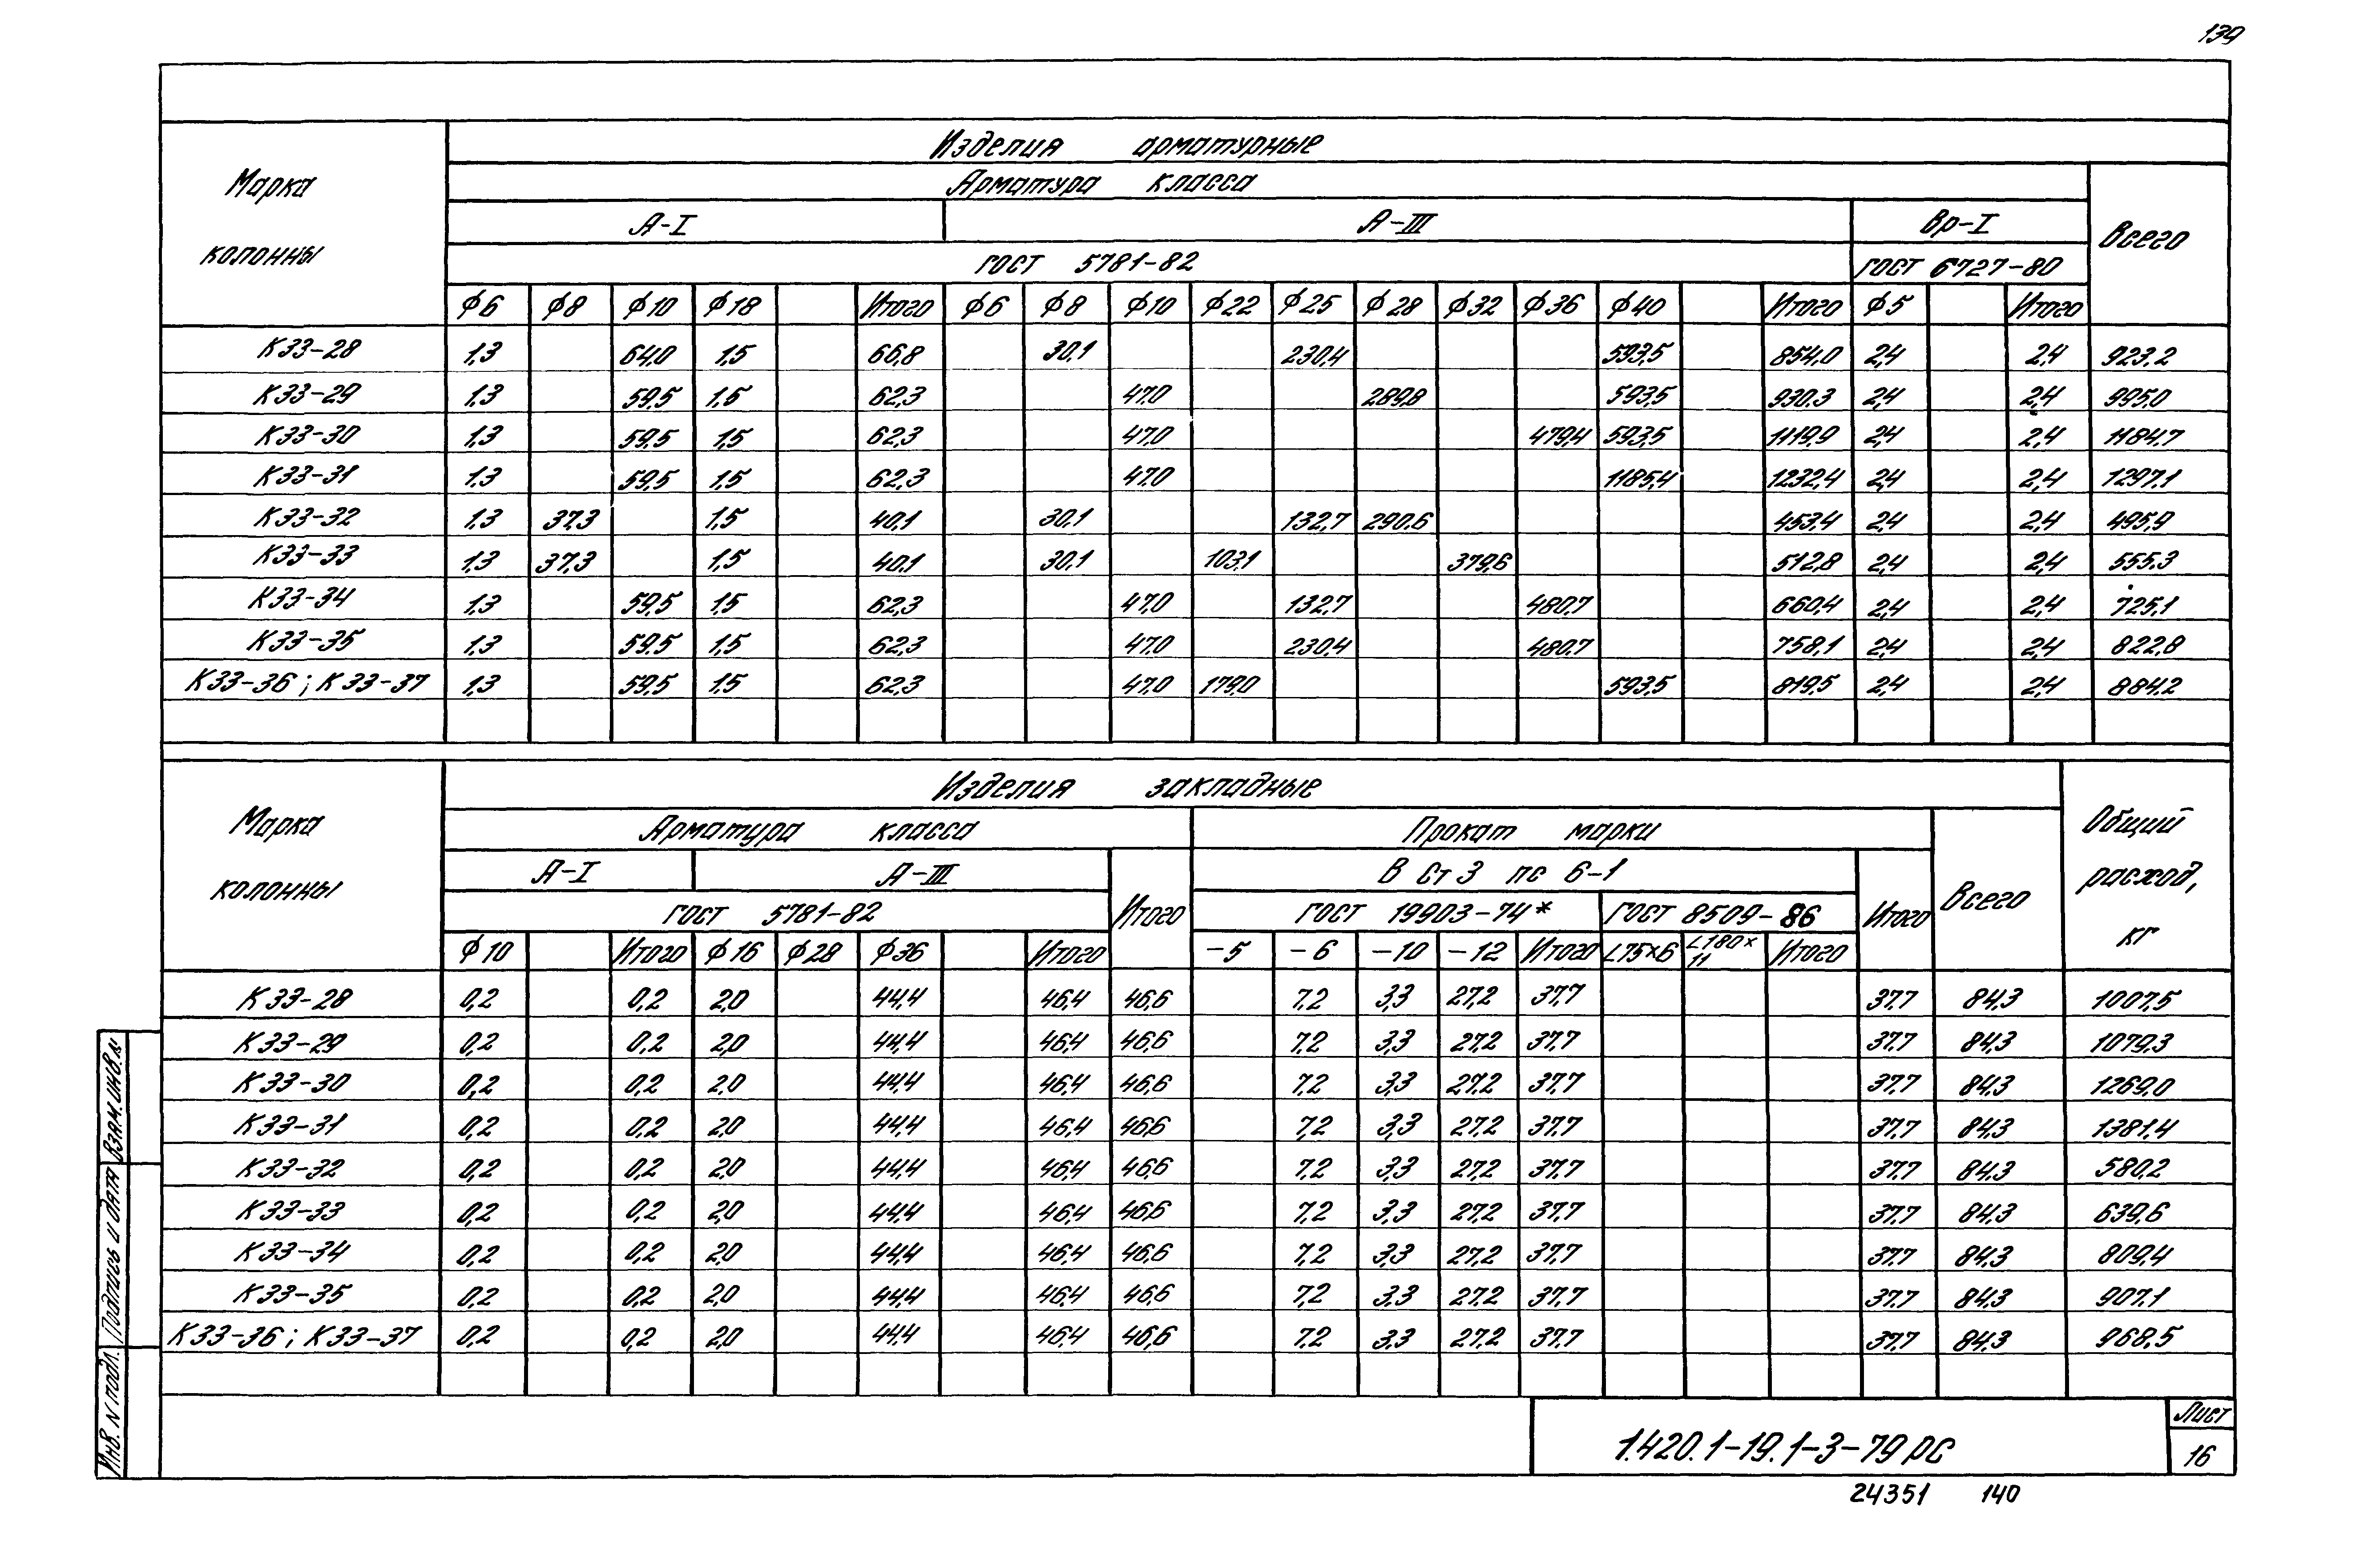 139
Марка колонны
Изделия арматурные
Арматура класса
Всего
А-I А-III Вр-I
ГОСТ 5781-82 ГОСТ 6727-80
ф6 ф8 ф10 ф18 Итого ф6 ф8 ф10 ф22 ф25 ф28 ф32 ф36 ф40 Итого ф5 Итого
К33-28 1,3 64,0 1,5 66,8 30,1 230,4 593,5 854,0 2,4 2,4 923,2
К33-29 1,3 59,5 1,5 62,3 47,0 289,8 593,5 930,3 2,4 2,4 995,0
К33-30 1,3 59,5 1,5 62,3 47,0 479,4 593,5 1119,9 2,4 2,4 1184,7
К33-31 1,3 59,5 1,5 62,3 47,0 1185,4 1232,4 2,4 2,4 1297,1
К33-32 1,3 37,3 1,5 40,1 30,1 132,7 290,6 453,4 2,4 2,4 495,9
К33-33 1,3 37,3 1,5 40,1 30,1 103,1 379,6 512,8 2,4 2,4 555,3
К33-34 1,3 59,5 1,5 62,3 47,0 132,7 480,7 660,4 2,4 2,4 725,1
К33-35 1,3 59,5 1,5 62,3 47,0 230,4 480,7 758,1 2,4 2,4 822,8
К33-36; К33-37 1,3 59,5 1,5 62,3 47,0 179,0 593,5 819,5 2,4 2,4 884,2
Марка колонны
Изделия закладные
Общий расход, кг
Арматура класса Прокат марки
Всего
А-I А-III Итого В Ст3 пс 6-1 Итого
ГОСТ 5781-82 ГОСТ 19903-74* ГОСТ 8509-86
ф10 Итого ф16 ф28 ф36 Итого -5 -6 -10 -12 Итого L75×6 L180×11 Итого
К33-28 0,2 0,2 2,0 44,4 46,4 46,6 7,2 3,3 27,2 37,7 37,7 84,3 1007,5
К33-29 0,2 0,2 2,0 44,4 46,4 46,6 7,2 3,3 27,2 37,7 37,7 84,3 1079,3
К33-30 0,2 0,2 2,0 44,4 46,4 46,6 7,2 3,3 27,2 37,7 37,7 84,3 1269,0
К33-31 0,2 0,2 2,0 44,4 46,4 46,6 7,2 3,3 27,2 37,7 37,7 84,3 1381,4
К33-32 0,2 0,2 2,0 44,4 46,4 46,6 7,2 3,3 27,2 37,7 37,7 84,3 580,2
К33-33 0,2 0,2 2,0 44,4 46,4 46,6 7,2 3,3 27,2 37,7 37,7 84,3 639,6
К33-34 0,2 0,2 2,0 44,4 46,4 46,6 7,2 3,3 27,2 37,7 37,7 84,3 809,4
К33-35 0,2 0,2 2,0 44,4 46,4 46,6 7,2 3,3 27,2 37,7 37,7 84,3 907,1
К33-36; К33-37 0,2 0,2 2,0 44,4 46,4 46,6 7,2 3,3 27,2 37,7 37,7 84,3 968,5
Взам. инв. №
Подпись и дата
Инв. N подл.
1.420.1-19.1-3-79РС
Лист
16
24351 140